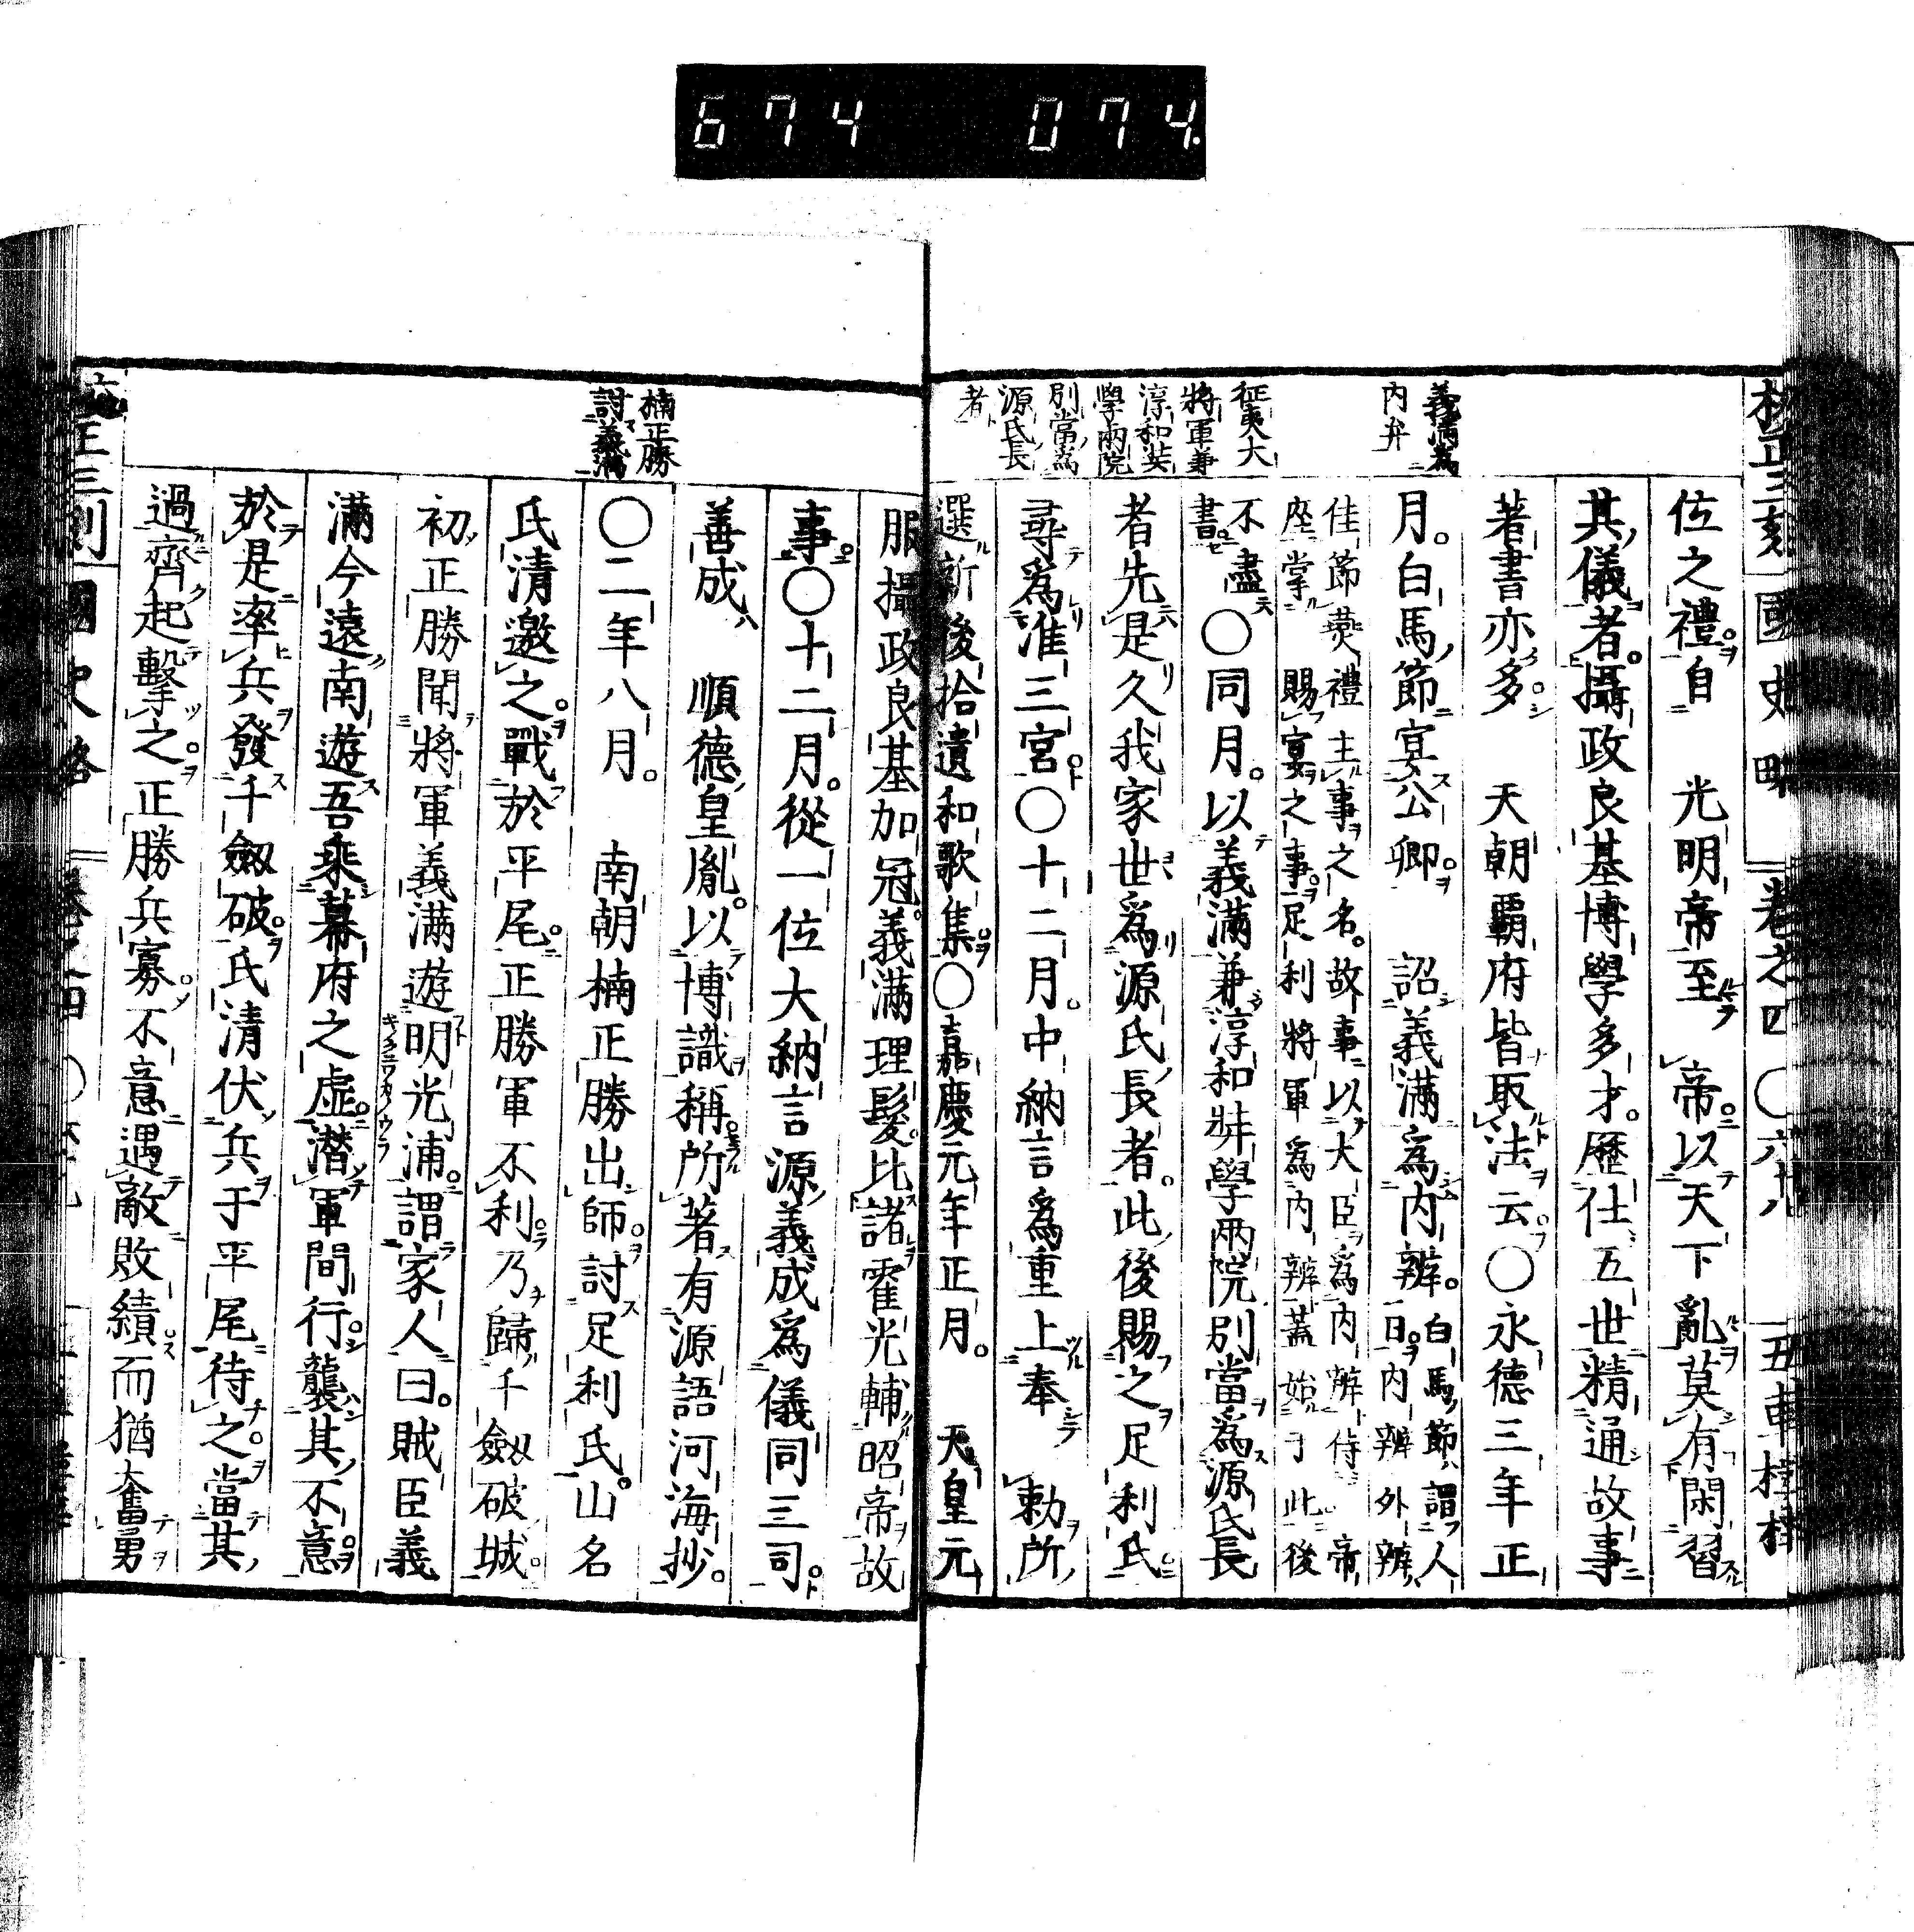 674 074
校正三刻 國史略 卷之四 〇六十八 五車樓梓
義滿為
內弁
征夷大
將軍兼
淳和奘
學兩院
別當為
源氏長
者
位之禮自 光明帝至 帝以天下亂莫有閑習
其儀者攝政良基博學多才。歷仕五世精通故事
著書亦多 天朝霸府皆取法云〇永德三年正
月。白馬節宴公卿 詔義滿為內辨。
白馬節謂人
一日內辨外辨
佳節爇禮主事之名。故事以大臣為內辨侍 帝
座掌 賜宴之事。足利將軍為內辨蓋始于此後
不盡
書
〇同月。以義滿兼淳和奘學兩院別當為源氏長
者先是久我家世為源氏長者。此後賜之足利氏
尋為准三宮〇十二月。中納言為重上奉 勅所
選新後拾遺和歌集〇嘉慶元年正月。 天皇元
楠正勝
討義滿
服攝政良基加冠。義滿理髮。比諸霍光輔昭帝故
事〇十二月。從一位大納言源義成為儀同三司
善成 順德皇胤。以博識稱所著有源語河海抄。
〇二年八月。 南朝楠正勝出師討足利氏。山名
氏清邀之。戰於平尾。正勝軍不利乃歸千劔破城。
初正勝聞將軍義滿遊明光浦謂家人曰。賊臣義
滿今遠南遊吾乘幕府之虛潛軍間行襲其不意
於是率兵發千劔破氏清伏兵于平尾待之當其
過齊起擊之正勝兵寡不意遇敵敗績而猶奮勇